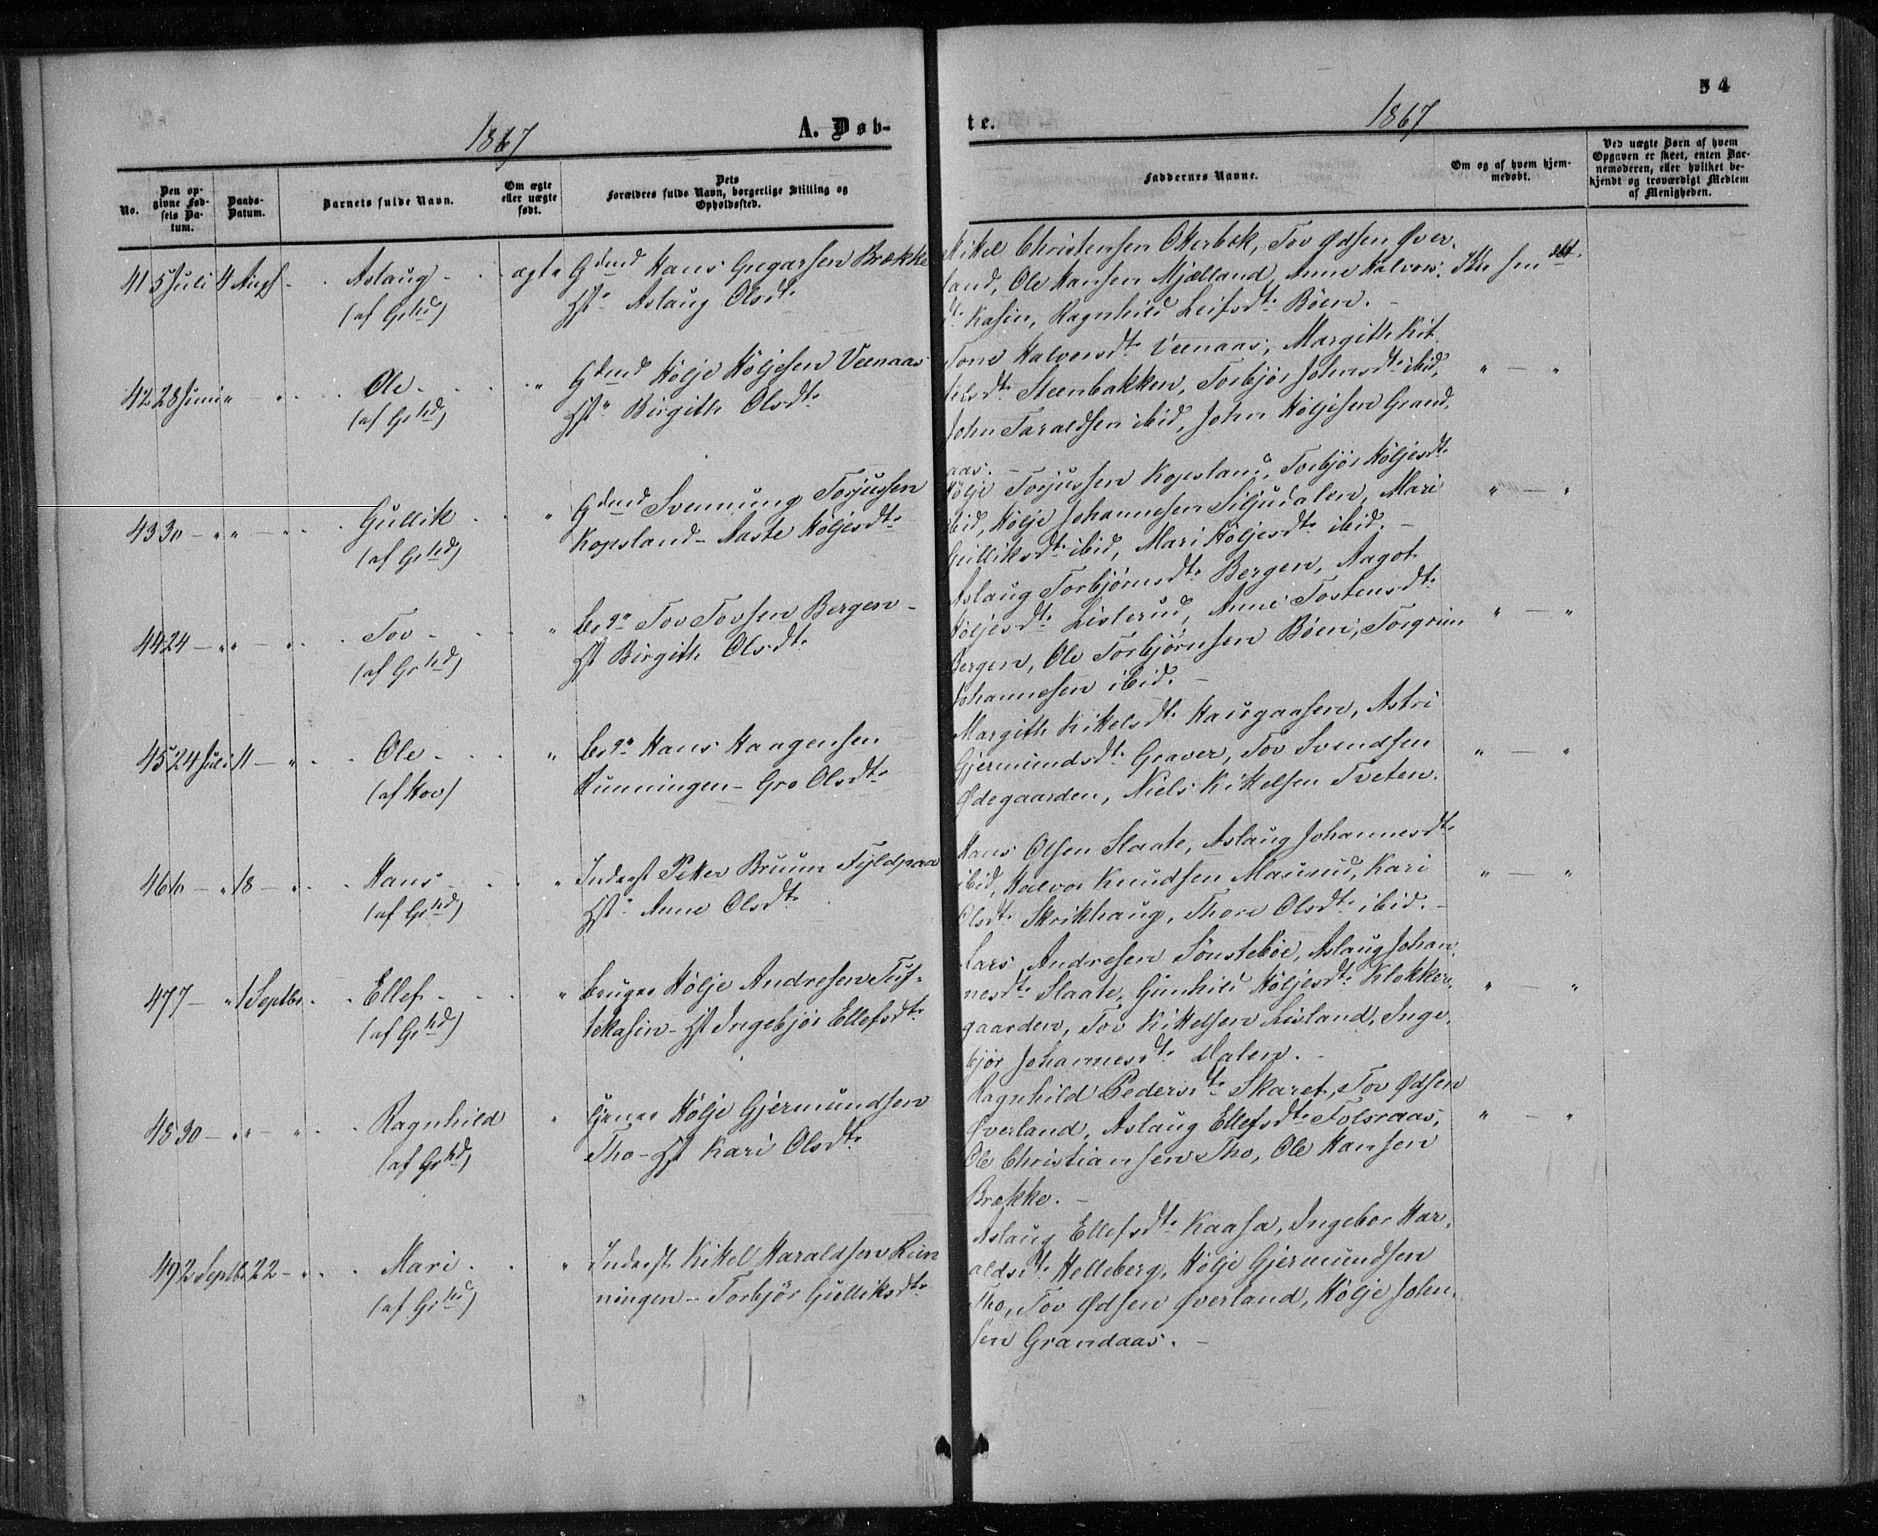 54
1867
A. Døb-
te.
1867
No.
Den op-
givne Fød-
sels Da-
tum.
Daabs-
Datum.
Barnets fulde Navn.
Om ægte
eller uægte
født.
Dets
Forældres fulde Navn, borgerlige Stilling og
Opholdssted.
Faddernes Navne.
Om og af hvem hjem-
medøbt.
Ved uægte Børn af hvem
Opgaven er skeet, enten Bar-
nemoderen, eller hvilket be-
kjendt og troværdigt Medlem
af Menigheden.
41 5 Juli 4 Aug. Aslaug ægte Gdmd Hans Gregarsen Brække
(af Grhd) Hst. Aslaug Olsdt.
Mikel Christensen Otterbæk, Tov Ødsen Øver-
land, Ole Hansen Mjælland, Anne Halvors-
dt. Kasin, Ragnhild Leifsdt. Böen. -
42 28 Juni " - " Ole " Gdmd Hölje Höljesen Veenaas
(af Grhd) Hst. Birgith Olsdt.
Tone Halvorsdt. Veenaas, Margith Kit-
tilsdt. Steenbakken, Torbjör Johnsdt. ibid,
John Taraldsen ibid, John Höljesen Grand-
aas. -
" - "
43 30 - " " - " Gullik " Gdmd Svennung Torjussen
(af Grhd) Kopsland - Aaste Höljesdt.
Hölje Torjussen Kopsland, Torbjör Höljesdt.
ibid, Hölje Johannesen Siljudalen, Mari
Gulliksdt. ibid, Mari Höljesdt. ibid. -
" - "
44 24 - " " - " Tov " Tov Tovsen Bergen -
(af Grhd) Hst Birgith Olsdt.
Aslaug Torbjörnsdt. Bergen, Aagot
Höljesdt. Listerud, Anne Tostensdt.
Bergen, Ole Torbjörnsen Böen, Torgrim
Johannesen ibid. -
" - "
45 24 Juli 11 - " Ole " Hans Haagensen
(af Hov) Runningen - Gro Olsdt.
Margith Kittelsdt. Haugaasen, Astri
Gjermundsdt. Graver, Tov Svendsen
Ødegaarden, Niels Kittelsen Tveten.
" - "
46 16 - " 18 - " Hans " Inderst Peter Bruun Fyldpaa
(af Grhd) Hst. Anne Olsdt.
Hans Olsen Slaate, Aslaug Johannesdt.
ibid, Halvor Knudsen Maurud, Kari
Olsdt. Skrikhaug, Thore Olsdt. ibid. -
" - "
47 7 - " 1 Septbr. Ellef " Bruger Hölje Andresen Tuf-
(af Grhd) tekasin - Hst Ingebjör Ellefsdt.
Lars Andresen Sönstebøe, Aslaug Johan-
nesdt. Slaate, Gunhild Höljesdt. Klokker-
gaarden, Tov Kittelsen Lisland, Inge-
björ Johannesdt. Dalen. -
" - "
48 30 - " " - " Ragnhild " Hölje Gjermundsen
(af Grhd) Tho - Hst Kari Olsdt.
Ragnhild Pedersdt. Skaret, Tov Ødsen
Øverland, Aslaug Ellefsdt. Folsraas,
Ole Christiansen Tho, Ole Hansen
Brække. -
" - "
49 2 Septbr. 22 - " Mari " Inderst Kittel Haraldsen Run-
(af Grhd) ningen - Torbjör Gulliksdt.
Aslaug Ellefsdt. Kaasa, Ingebor Har-
aldsdt. Helleberg, Hölje Gjermundsen
Tho, Tov Ødsen Øverland, Hölje John-
sen Grandaas. -